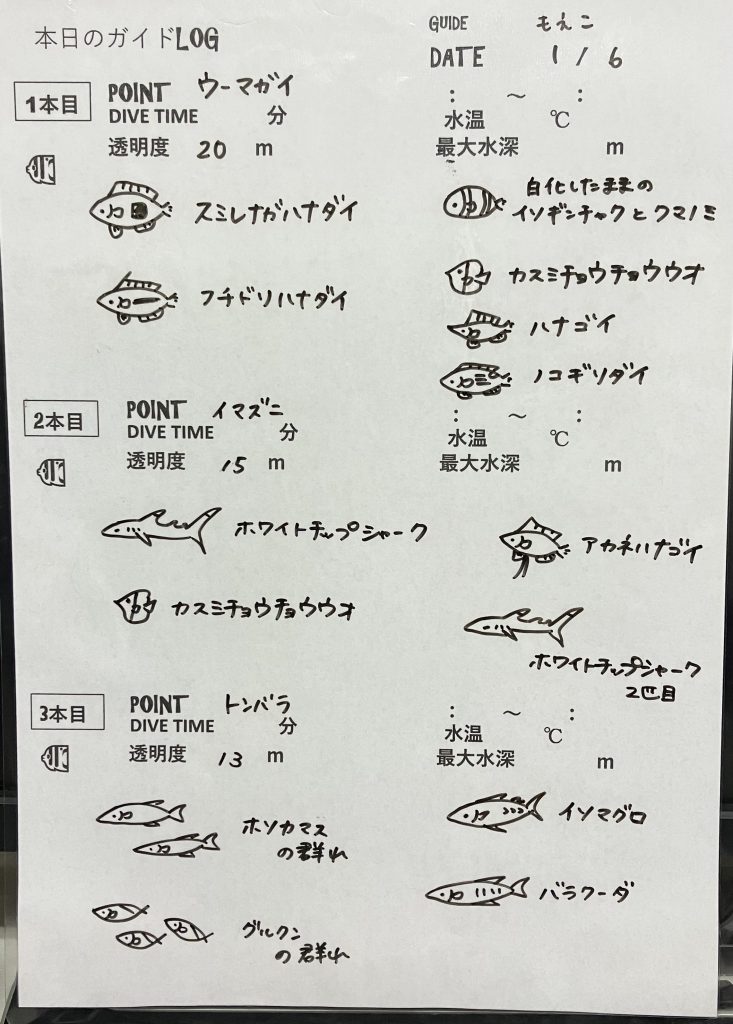 本日のガイドLOG
GUIDE もえこ
DATE 1 / 6
1本目
POINT ウーマガイ
DIVE TIME 分
透明度 20 m
: ～ :
水温 ℃
最大水深 m
スミレナガハナダイ
フチドリハナダイ
白化したままの
イソギンチャクとクマノミ
カスミチョウチョウウオ
ハナゴイ
ノコギリダイ
2本目
POINT イマズニ
DIVE TIME 分
透明度 15 m
: ～ :
水温 ℃
最大水深 m
ホワイトチップシャーク
カスミチョウチョウウオ
アカネハナゴイ
ホワイトチップシャーク
2匹目
3本目
POINT トンバラ
DIVE TIME 分
透明度 13 m
: ～ :
水温 ℃
最大水深 m
ホソカマス
の群れ
グルクン
の群れ
イソマグロ
バラクーダ